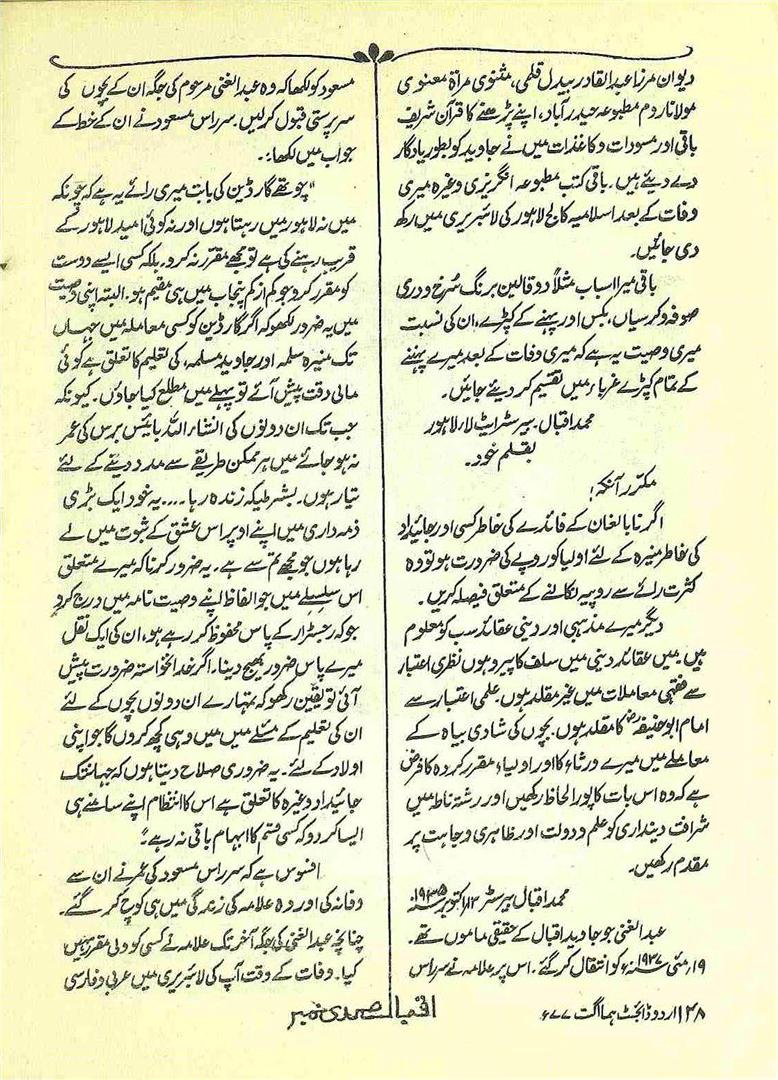 دیوان مرزا عبدالقادر بیدل قلمی، مثنوی مرأۃ معنوی
مولانا روم مطبوعہ حیدرآباد، اپنے پڑھنے کا قرآن شریف
باقی اور مسودات و کاغذات میں نے جاوید کو بطور یادگار
دے دیئے ہیں۔ باقی کتب مطبوعہ انگریزی وغیرہ میری
وفات کے بعد اسلامیہ کالج لاہور کی لائبریری میں رکھ
دی جائیں۔
باقی میرا اسباب مثلاً دو قالین برنگ سُرخ و دری
صوفہ و کرسیاں، بکس اور پہننے کے کپڑے، ان کی نسبت
میری وصیت یہ ہے کہ میری وفات کے بعد میرے پہننے
کے تمام کپڑے غربار میں تقسیم کر دیئے جائیں۔
محمد اقبال۔ بیرسٹر ایٹ لار، لاہور
بقلم خود۔
مکرّر آنکہ!
اگر نابالغان کے فائدے کی خاطر کسی اور جائیداد
کی خاطر منیرہ کے لئے اولیا کو روپے کی ضرورت ہو تو وہ
کثرت رائے سے روپیہ نکالنے کے متعلق فیصلہ کریں۔
دیگر میرے مذہبی اور دینی عقائد سب کو معلوم
ہیں۔ میں عقائد دینی میں سلف کا پیرو ہوں نظری اعتبار
سے فقہی معاملات میں غیر مقلد ہوں۔ علمی اعتبار سے
امام ابو حنیفہؒ کا مقلد ہوں۔ بچوں کی شادی بیاہ کے
معاملے میں میرے ورثاء کا اور اولیاء مقرر کردہ کا فرض
ہے کہ وہ اس بات کا پورا لحاظ رکھیں اور رشتہ ناطہ میں
شرافت دینداری کو علم و دولت اور ظاہری وجاہت پر
مقدم رکھیں۔
محمد اقبال بیرسٹر ۱۳؍اکتوبر ۱۹۳۵ء
عبد الغنی جو جاوید اقبال کے حقیقی ماموں تھے۔
۱۹؍مئی ۱۹۳۷ء کو انتقال کر گئے۔ اس پر علامہ نے سر راس
مسعود کو لکھا کہ وہ عبد الغنی مرحوم کی جگہ ان کے بچوں کی
سرپرستی قبول کر لیں۔ سر راس مسعود نے ان کے خط کے
جواب میں لکھا:۔
"چوتھے گارڈین کی بابت میری رائے یہ ہے کہ چونکہ
میں نہ لاہور میں رہتا ہوں اور نہ کوئی امید لاہور کے
قریب رہنے کی ہے تو مجھے مقرر نہ کرو۔ بلکہ کسی ایسے دوست
کو مقرر کرو جو کم از کم پنجاب میں ہی مقیم ہو۔ البتہ اپنی وصیت
میں یہ ضرور لکھو کہ اگر گارڈین کو کسی معاملہ میں جہاں
تک منیرہ سلمہ اور جاوید مسلمہ، کی تعلیم کا تعلق ہے کوئی
مالی دقت پیش آئے تو پہلے میں مطلع کیا جاؤں۔ کیونکہ
جب تک ان دونوں کی انشاء اللہ بائیس برس کی عمر
نہ ہو جائے میں ہر ممکن طریقے سے مدد دینے کے لئے
تیار ہوں۔ بشرطیکہ زندہ رہا .... یہ خود ایک بڑی
ذمہ داری میں اپنے اوپر اس عشق کے ثبوت میں لے
رہا ہوں جو مجھے تم سے ہے۔ یہ ضرور کرنا کہ میرے متعلق
اس سلسلے میں جو الفاظ اپنے وصیت نامہ میں درج کرو
جو کہ رجسٹرار کے پاس محفوظ کر رہے ہو، ان کی ایک نقل
میرے پاس ضرور بھیج دینا۔ اگر خدانخواستہ ضرورت پیش
آئی تو یقین رکھو کہ تمہارے ان دونوں بچوں کے لئے
ان کی تعلیم کے مسئلے میں میں وہی کچھ کروں گا جو اپنی
اولاد کے لئے۔ یہ ضروری صلاح دیتا ہوں کہ جہانتک
جائیداد وغیرہ کا تعلق ہے اس کا انتظام اپنے سامنے ہی
ایسا کر دو کہ کسی قسم کا ابہام باقی نہ رہے۔"
افسوس ہے کہ سر راس مسعود کی عمر نے ان سے
وفا نہ کی اور وہ علامہ کی زندگی میں ہی کوچ کر گئے۔
چنانچہ عبد الغنی کی جگہ آخر تک علامہ نے کسی کو ولی مقرر نہیں
کیا۔ وفات کے وقت آپ کی لائبریری میں عربی و فارسی
۱۲۸ اردو ڈائجسٹ ہما اگست ۷۷ء
اقبال صدی نمبر